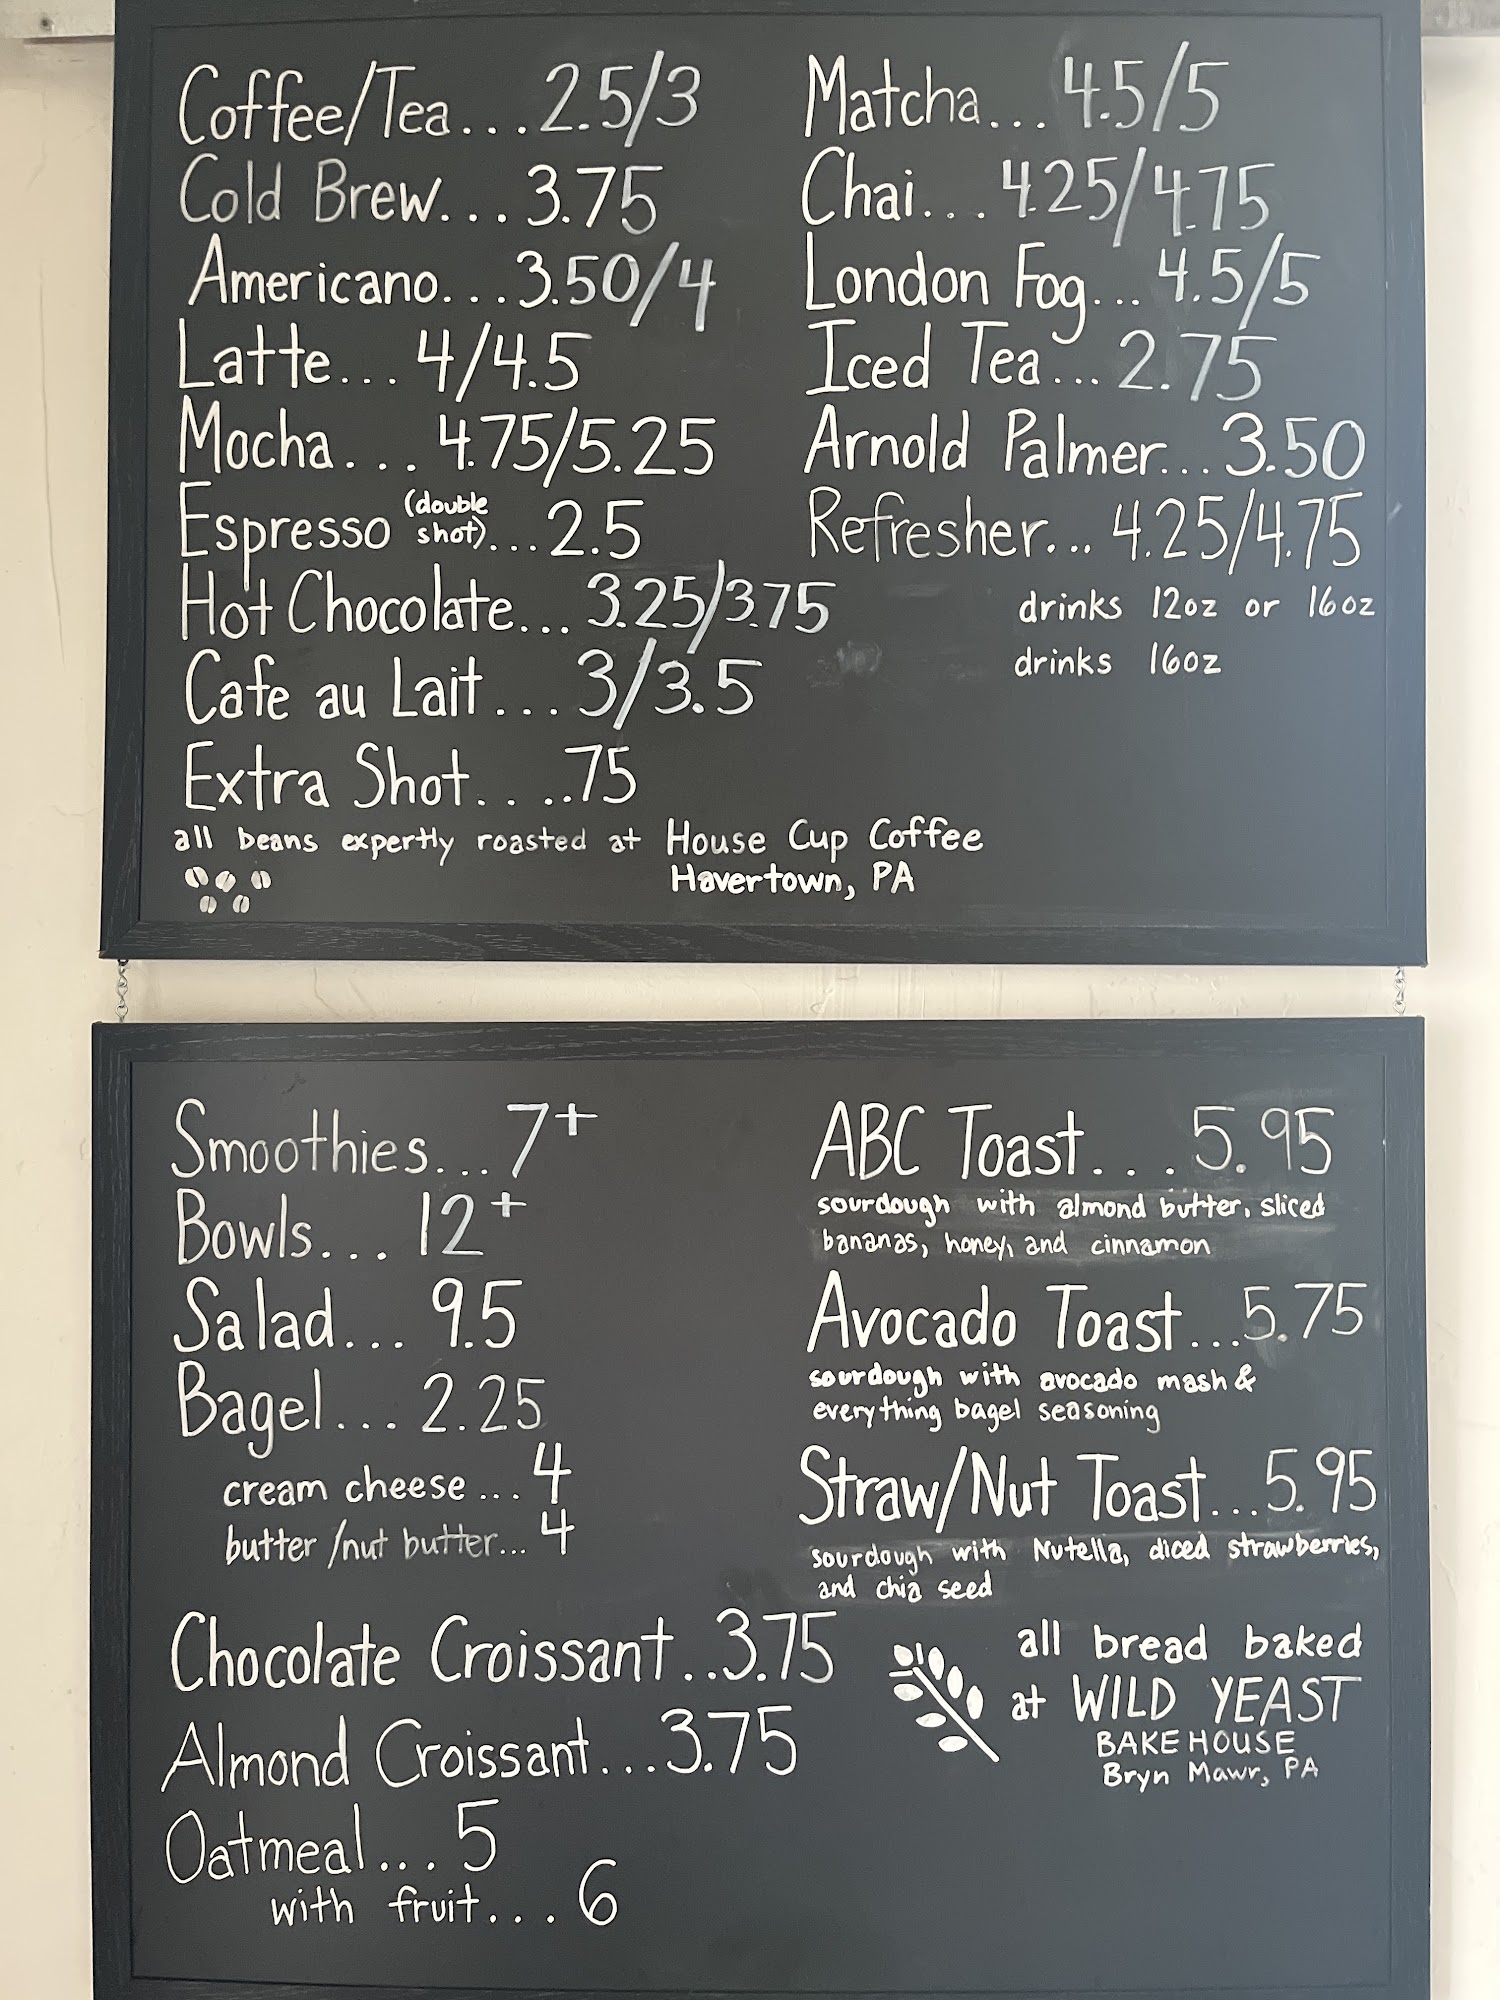 Coffee/Tea...2.5/3
Cold Brew...3.75
Americano...3.50/4
Latte... 4/4.5
Mocha... 4.75/5.25
Espresso (double shot)...2.5
Hot Chocolate... 3.25/3.75
Cafe au Lait...3/3.5
Extra Shot. . ..75
all beans expertly roasted at House Cup Coffee
Havertown, PA
Matcha... 4.5/5
Chai... 4.25/4.75
London Fog... 4.5/5
Iced Tea...2.75
Arnold Palmer...3.50
Refresher... 4.25/4.75
drinks 12oz or 16oz
drinks 16oz
Smoothies...7+
Bowls...12+
Salad... 9.5
Bagel... 2.25
cream cheese...4
butter/nut butter...4
Chocolate Croissant..3.75
Almond Croissant...3.75
Oatmeal...5
with fruit...6
ABC Toast...5.95
sourdough with almond butter, sliced
bananas, honey, and cinnamon
Avocado Toast...5.75
sourdough with avocado mash &
everything bagel seasoning
Straw/Nut Toast...5.95
sourdough with Nutella, diced strawberries,
and chia seed
all bread baked
at WILD YEAST
BAKEHOUSE
Bryn Mawr, PA